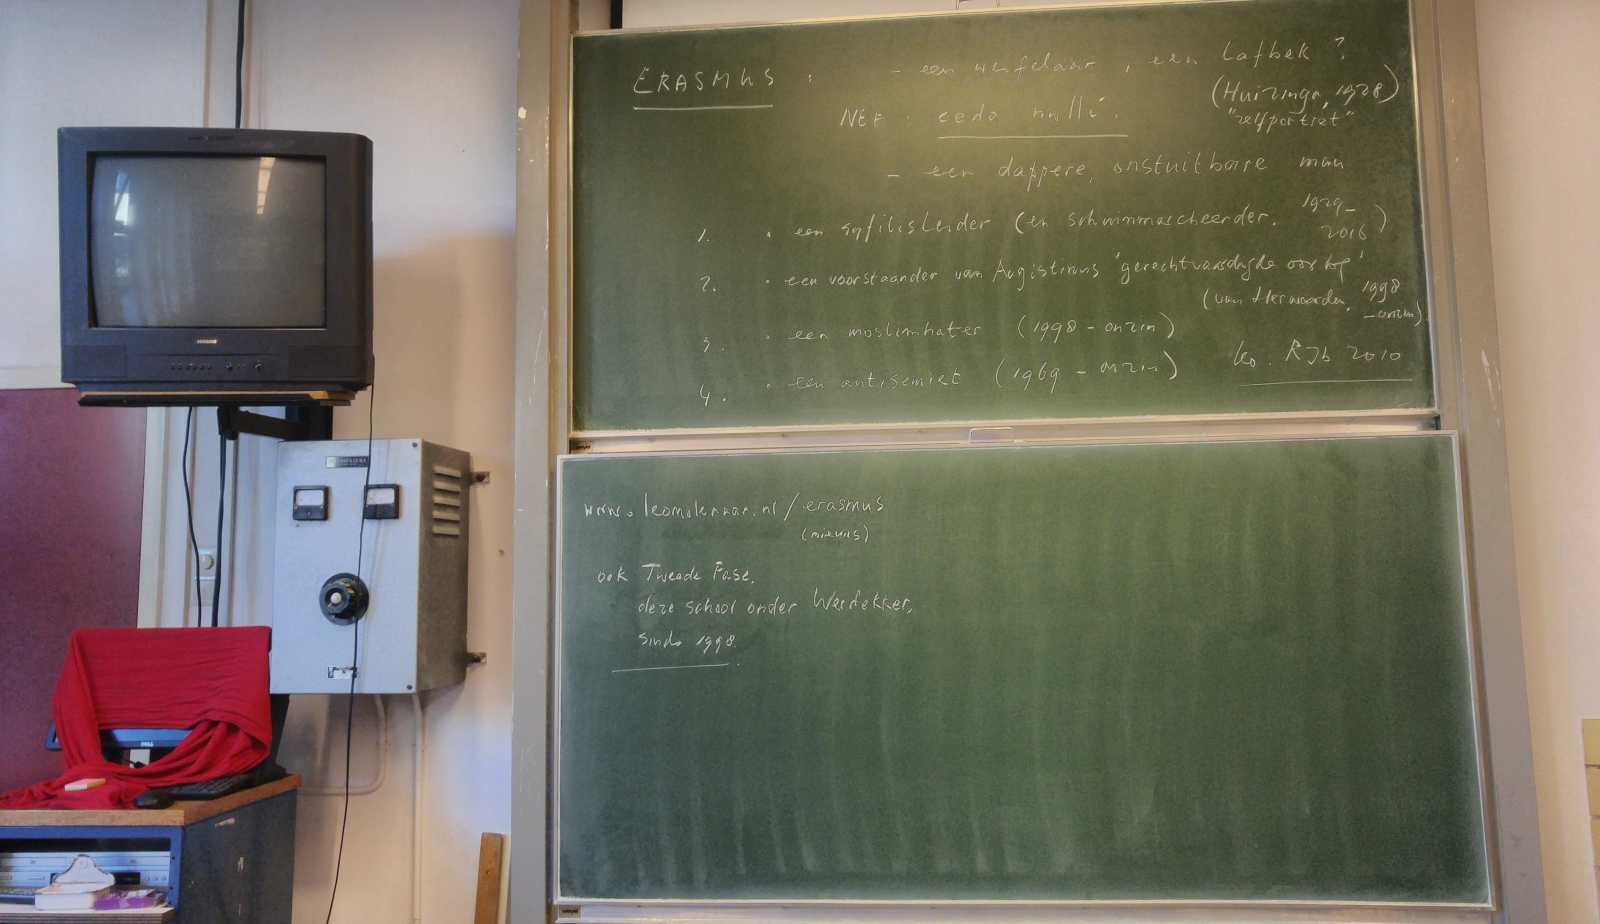 ERASMUS : - een weifelaar, een lafbek ?
(Huizinga, 1928)
NEE : cedo nulli.
"zelfportret"
- een dappere, onstuitbare man
1. • een syfilislijder (en schuinmarcheerder. 1929-2016)
2. • een voorstaander van Augistinus 'gerechtvaardigde oorlog'
(van Herwaarden, 1998 - onzin)
3. • een moslimhater (1998 - onzin)
4. • een antisemiet (1969 - onzin)
2010
www.leomolenaar.nl/erasmus
(nieuws)
ook Tweede Fase.
deze school onder
sinds 1998.
DELL